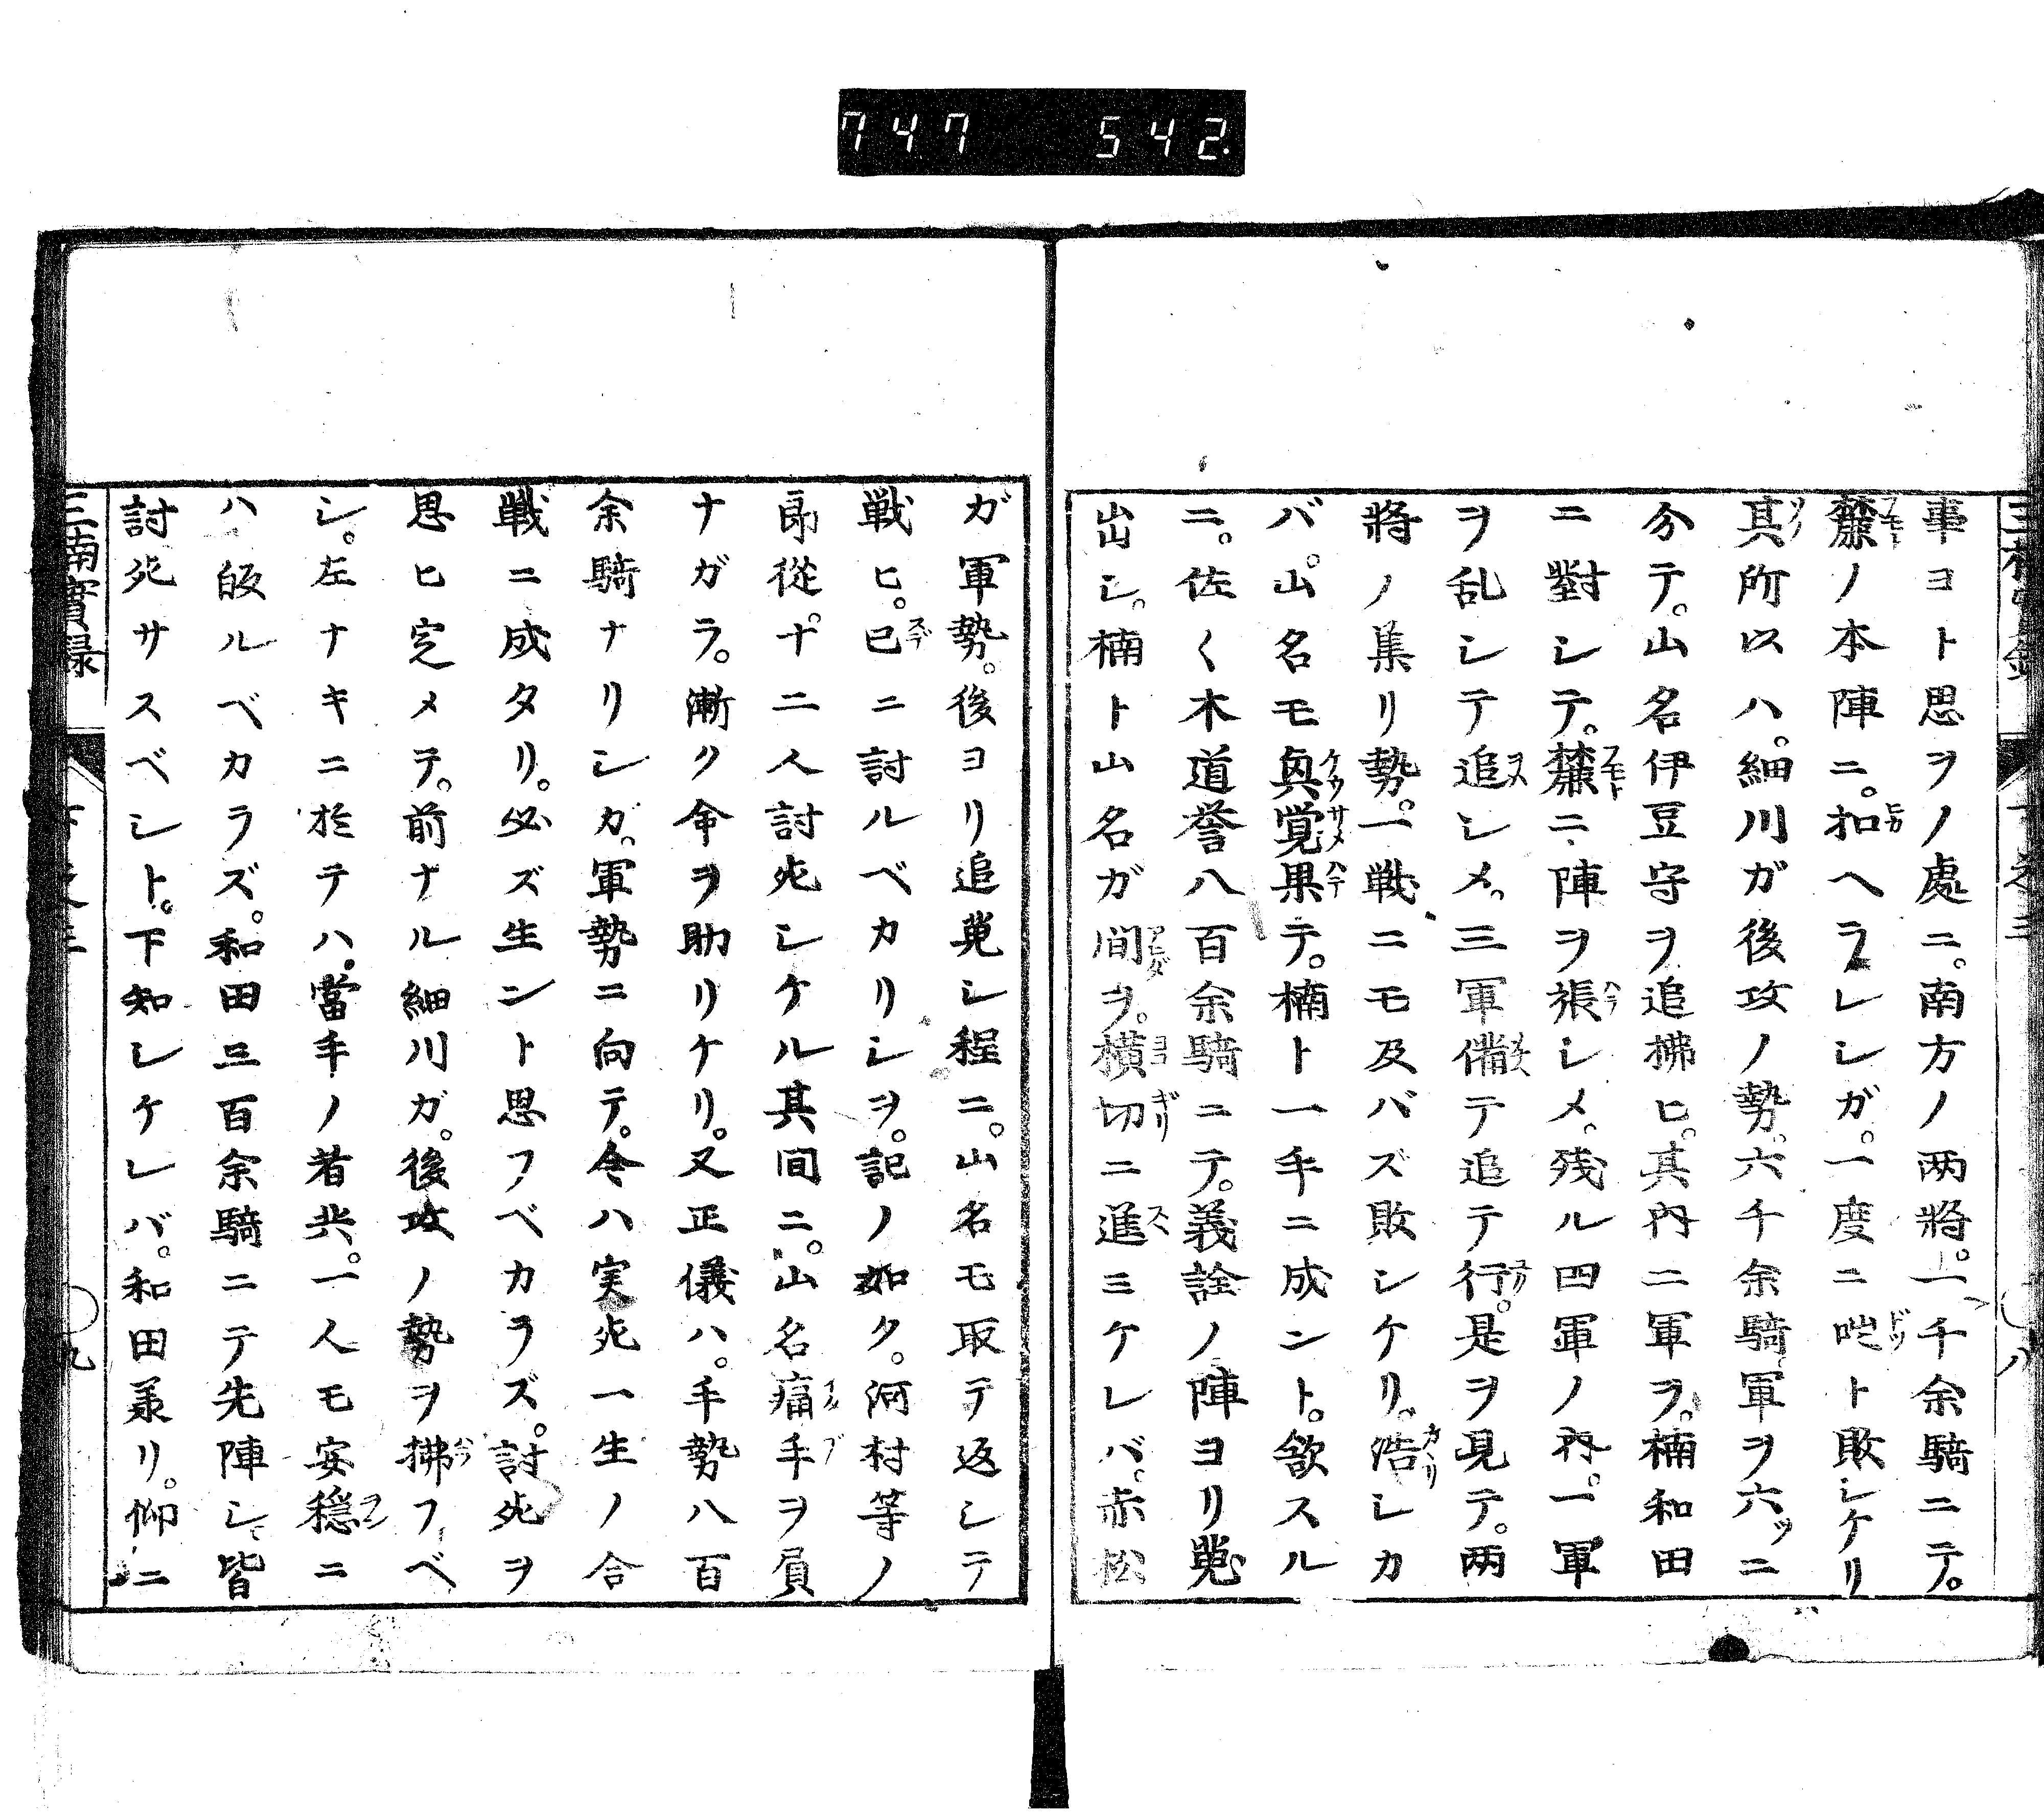 747 542.
事ヨト思ヲノ處ニ。南方ノ両將。一千余騎ニテ。
麓ノ本陣ニ。扣ヘラレシガ。一度ニ咄ト敗シケリ
其所以ハ。細川ガ後攻ノ勢。六千余騎軍ヲ六ツニ
分テ。山名伊豆守ヲ追拂ヒ。其内二軍ヲ。楠和田
ニ對シテ。麓ニ陣ヲ張シメ。残ル四軍ノ内。一軍
ヲ乱シテ追シメ。三軍備テ追テ行。是ヲ見テ。両
將ノ集リ勢。一戦ニモ及バズ敗シケリ。浩シカ
バ。山名モ興覚果テ。楠ト一手ニ成ント。欲スル
ニ。佐々木道誉八百余騎ニテ。義詮ノ陣ヨリ
出シ。楠ト山名ガ間ヲ。横切ニ進ミケレバ。赤松
ガ軍勢。後ヨリ追
シ程ニ。山名モ取テ返シテ
戦ヒ。已ニ討ルベカリシヲ。記ノ如ク。河村等ノ
郎從。十二人討死シケル其間ニ。山名痛手ヲ負
ナガラ。漸ク命ヲ助リケリ。又正儀ハ。手勢八百
余騎ナリシカ。軍勢ニ向テ。今ハ実死一生ノ合
戦ニ成タリ。必ズ生ント思フベカラズ。討死ヲ
思ヒ定メテ。前ナル細川ガ。後攻ノ勢ヲ拂フベ
シ。左ナキニ於テハ。當手ノ者共。一人モ安穏ニ
ハ皈ルベカラズ。和田三百余騎ニテ先陣シ、皆
討死サスベシト。下知シケレバ。和田義リ。仰ニ
三楠實録
九